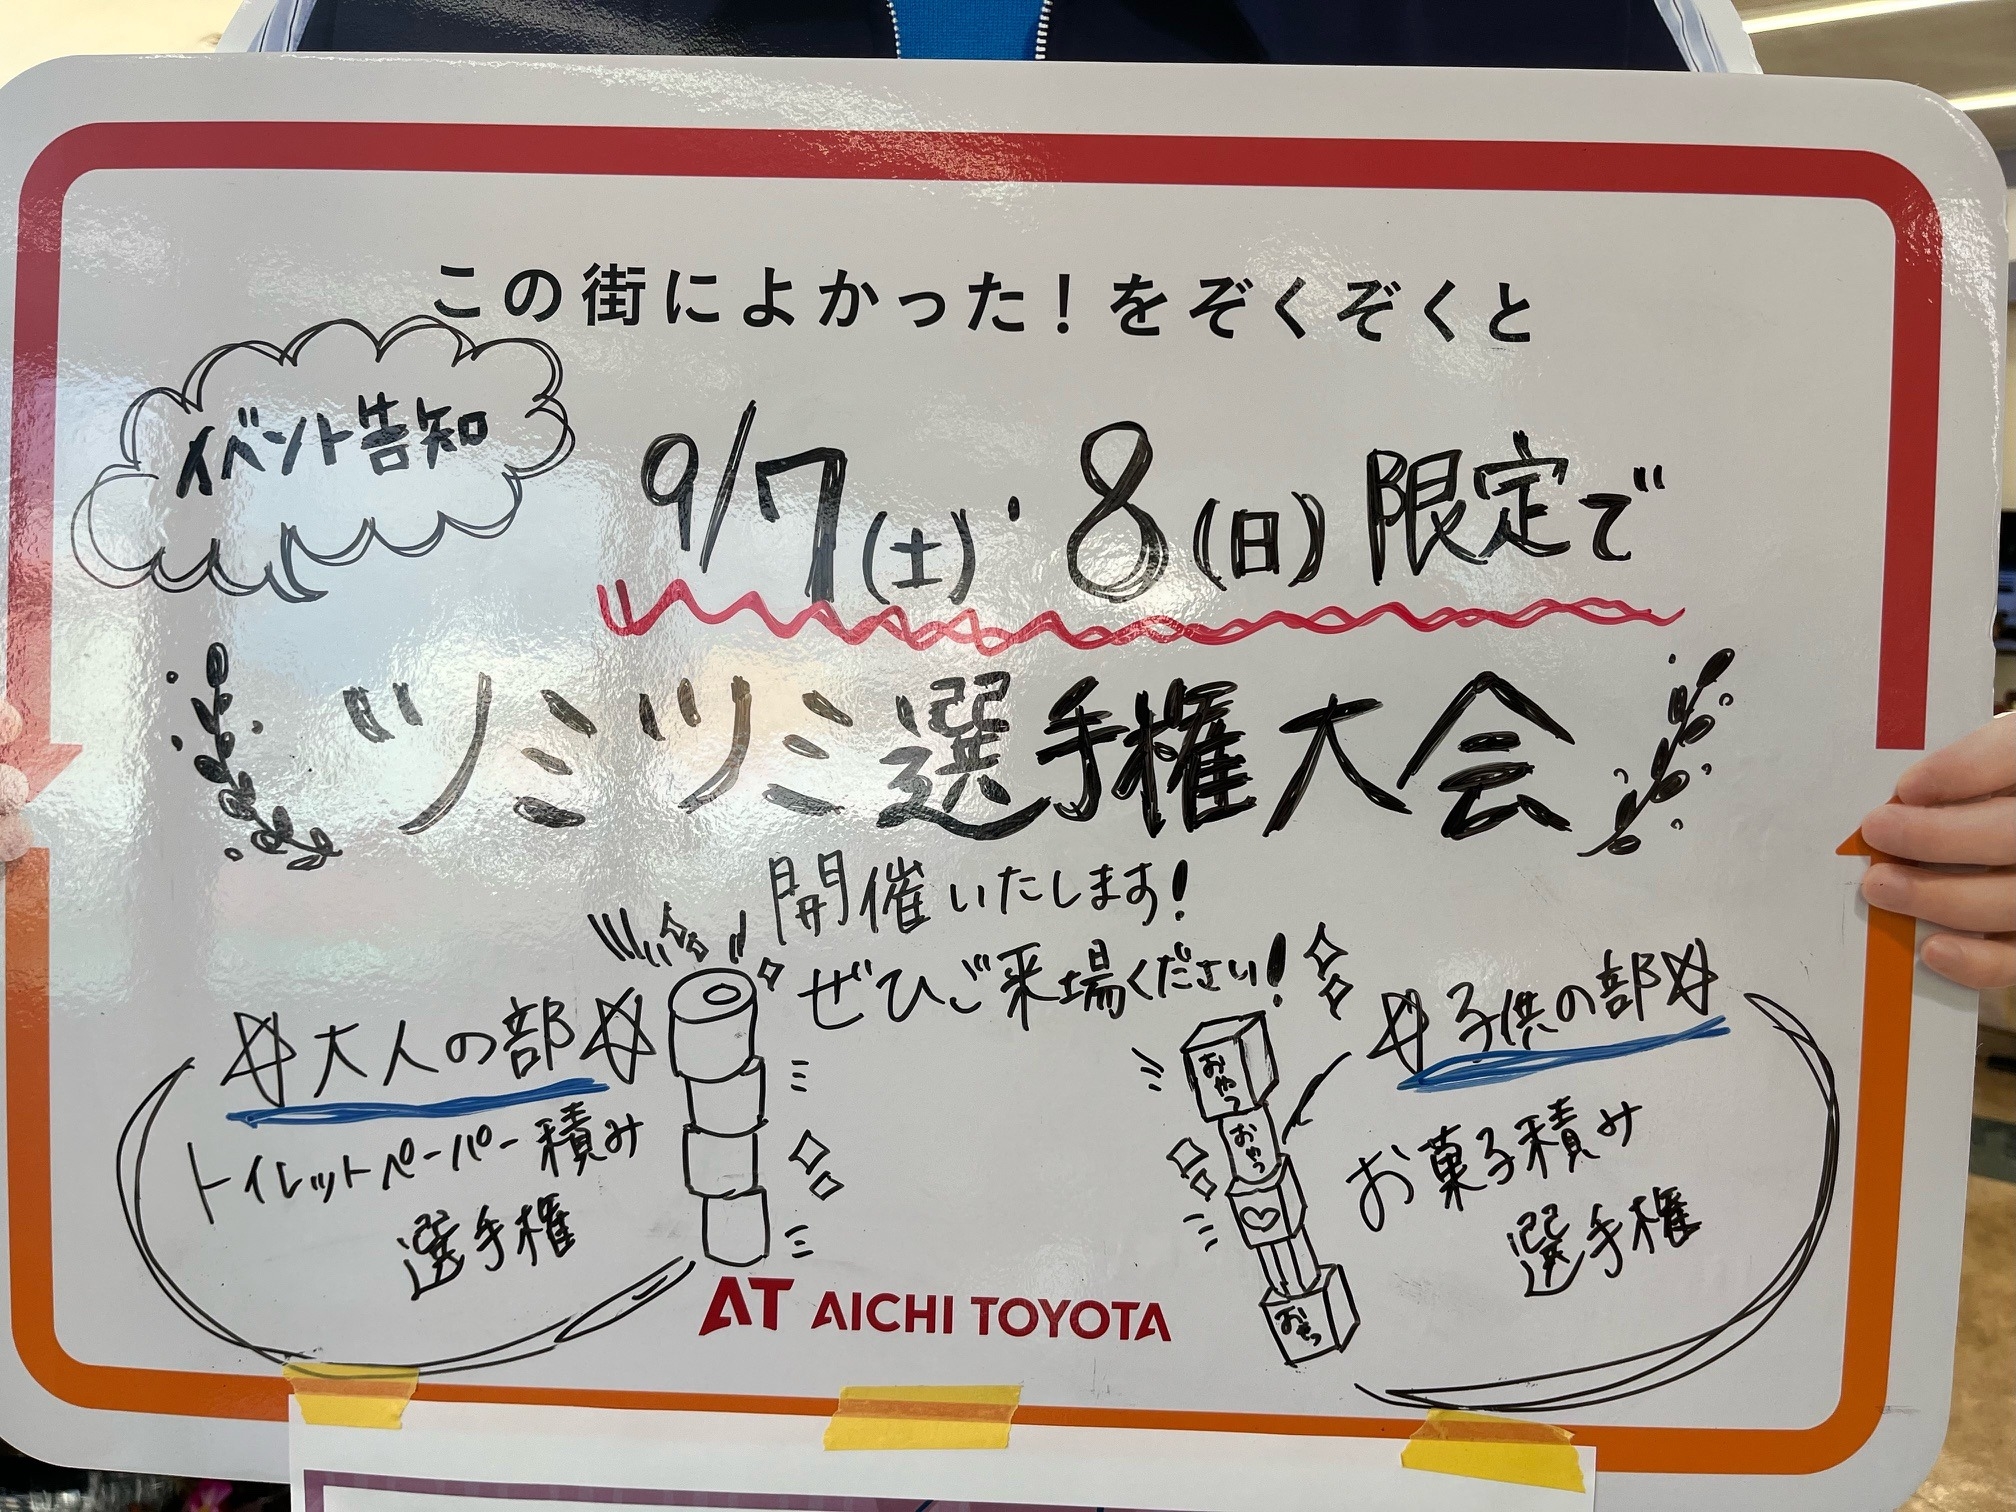 この街によかった！をぞくぞくと
イベント告知
9/7(土)・8(日)限定で
ツミツミ選手権大会
開催いたします!
ぜひご来場ください!
☆大人の部☆
トイレットペーパー積み
選手権
☆子供の部☆
お菓子積み
選手権
おやつ
おやつ
おやつ
AT AICHI TOYOTA